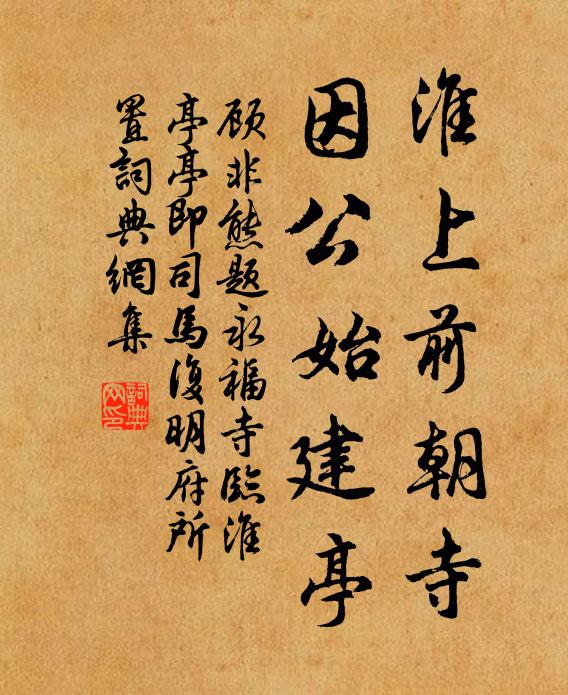 淮上前朝寺
因公始建亭
顾非熊題永福寺臨淮
亭亭即司馬復明府所
置詞典網集
詞典网印